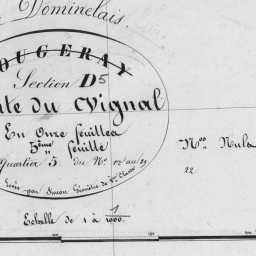 Dominelais.
OUGERAY
Section D5
te du Vignal
En Onze feuilles
5ème feuille
Quartier 5 du No
Levée par Simon Géomètre de 1ère Classe
Echelle de 1 à 1/1000.
22